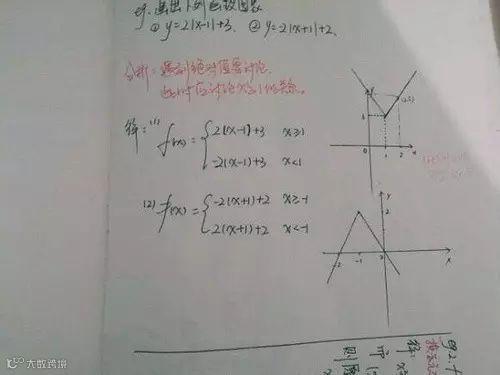 例. 画出下列函数图象
① y=2|x-1|+3. ② y=-2|x+1|+2.
分析: 遇到绝对值要讨论.
此时应讨论x与1的关系.
解: (1) f(x)= { 2(x-1)+3 x≥1
-2(x-1)+3 x<1
(2) f(x)= { -2(x+1)+2 x≥-1
2(x+1)+2 x<-1
y
3
1 2 x
y
2
-2 -1 0 x
例2.
解:
即
则
大数跨境